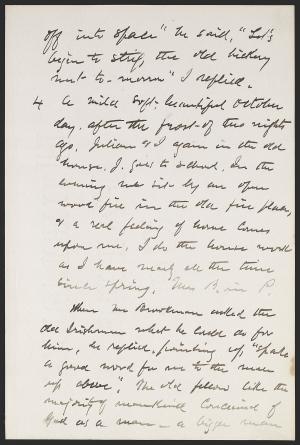 off into space" he said, "Let's
begin to strip, the old hickory
nut to-morrow" I replied.
4 A mild soft beautiful October
day. after the frost of two nights
ago. Julian & I again in the old
house. J. goes to school. In the
evening we sit by an open
wood fire in the old fire place,
& a real feeling of home comes
upon me. I do the house work
as I have nearly all the time
since spring. Mrs B. in P.
When Mr Brookman asked the
old Irishman what he could do for
him, he replied, pointing up, "Speak
a good word for me to the man
up above". The old fellow like the
majority of mankind conceived of
God as a man — a bigger man